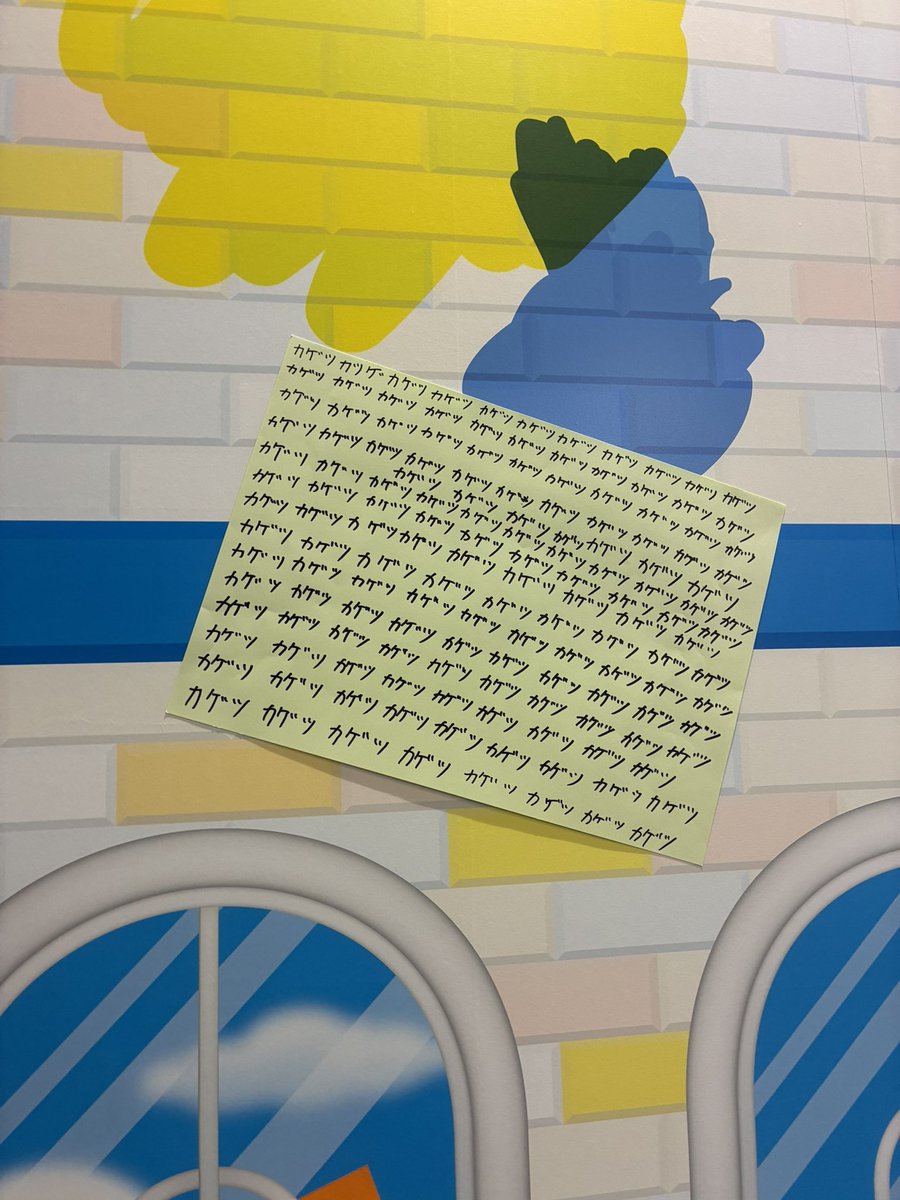 カゲツ カツゲ カゲツ カゲツ カゲツ カゲツ カゲツ カゲツ カゲツ カゲツ カゲツ
カゲツ カゲツ カゲツ カゲツ カゲツ カゲツ カゲツ カゲツ カゲツ カゲツ カゲツ
カゲツ カゲツ カゲツ カゲツ カゲツ カゲツ カゲツ カゲツ カゲツ カゲツ カゲツ
カゲツ カゲツ カゲツ カゲツ カゲツ カゲツ カゲツ カゲツ カゲツ カゲツ カゲツ
カゲツ カゲツ カゲツ カゲツ カゲツ カゲツ カゲツ カゲツ カゲツ
カゲツ カゲツ カゲツ カゲツ カゲツ カゲツ カゲツ カゲツ カゲツ カゲツ カゲツ
カゲツ カゲツ カゲツ カゲツ カゲツ カゲツ カゲツ カゲツ カゲツ カゲツ
カゲツ カゲツ カゲツ カゲツ カゲツ カゲツ カゲツ カゲツ カゲツ
カゲツ カゲツ カゲツ カゲツ カゲツ カゲツ カゲツ カゲツ カゲツ カゲツ
カゲツ カゲツ カゲツ カゲツ カゲツ カゲツ カゲツ カゲツ カゲツ カゲツ
カゲツ カゲツ カゲツ カゲツ カゲツ カゲツ カゲツ カゲツ カゲツ カゲツ
カゲツ カゲツ カゲツ カゲツ カゲツ カゲツ カゲツ カゲツ カゲツ
カゲツ カゲツ カゲツ カゲツ カゲツ カゲツ カゲツ カゲツ カゲツ
カゲツ カゲツ カゲツ カゲツ カゲツ カゲツ カゲツ カゲツ